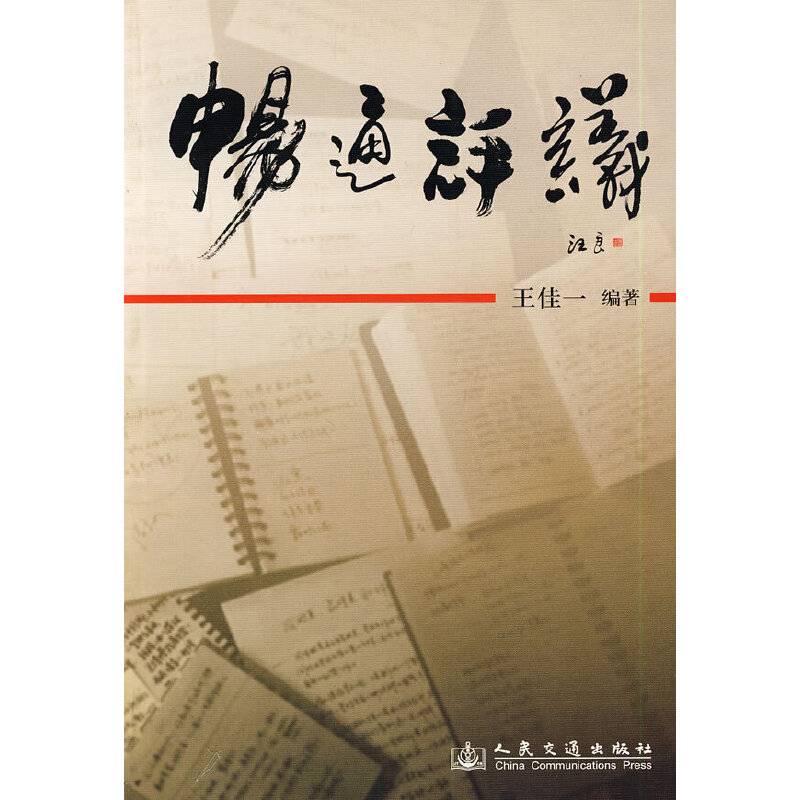 暢通評議
汪良
王佳一 编著
人民交通出版社
China Communications Press